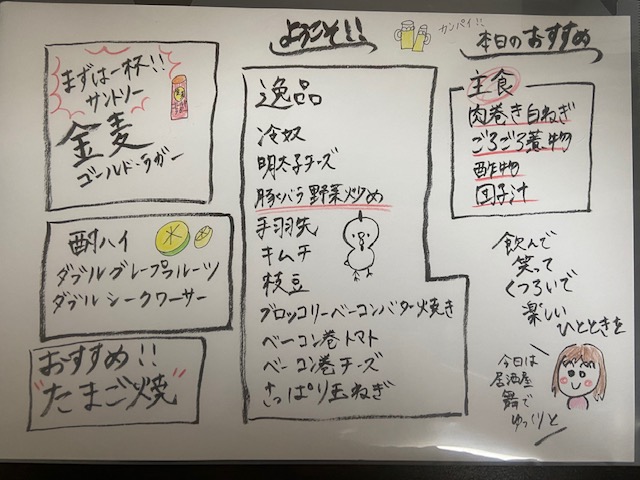 ようこそ!!
カンパイ!!
本日のおすすめ
まずは一杯!!
サントリー
金麦
ゴールド・ラガー
酎ハイ
ダブルグレープフルーツ
ダブルシークワーサー
おすすめ!!
"たまご焼"
逸品
冷奴
明太子チーズ
豚バラ野菜炒め
手羽先
キムチ
枝豆
ブロッコリーベーコンバター焼き
ベーコン巻トマト
ベーコン巻チーズ
さっぱり玉ねぎ
主食
肉巻き白ねぎ
ごろごろ煮物
酢物
団子汁
飲んで
笑って
くつろいで
楽しい
ひとときを
今日は
居酒屋
舞で
ゆっくりと